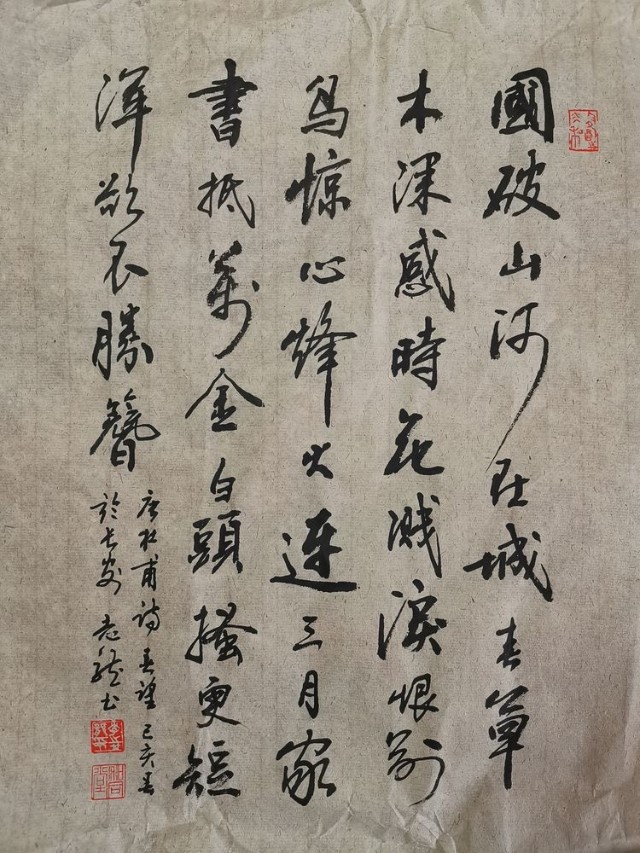 國破山河在城春草
木深感時花濺淚恨別
鳥惊心烽火連三月家
書抵萬金白頭搔更短
渾欲不勝簪
唐杜甫詩春望己亥春
於長安